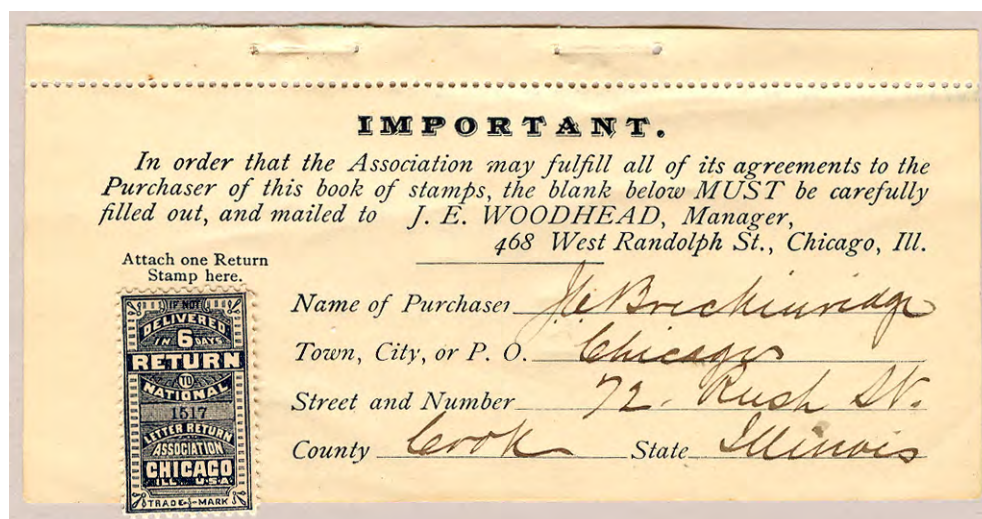 IMPORTANT.
In order that the Association may fulfill all of its agreements to the
Purchaser of this book of stamps, the blank below MUST be carefully
filled out, and mailed to J. E. WOODHEAD, Manager,
468 West Randolph St., Chicago, Ill.
Attach one Return
Stamp here.
IF NOT
DELIVERED
IN 6 DAYS
RETURN
TO
NATIONAL
1517
LETTER RETURN
ASSOCIATION
CHICAGO
ILL. U.S.A.
TRADE-MARK
Name of Purchaser J. C. Breckinridge
Town, City, or P. O. Chicago
Street and Number 72. Rush St.
County Cook State Illinois